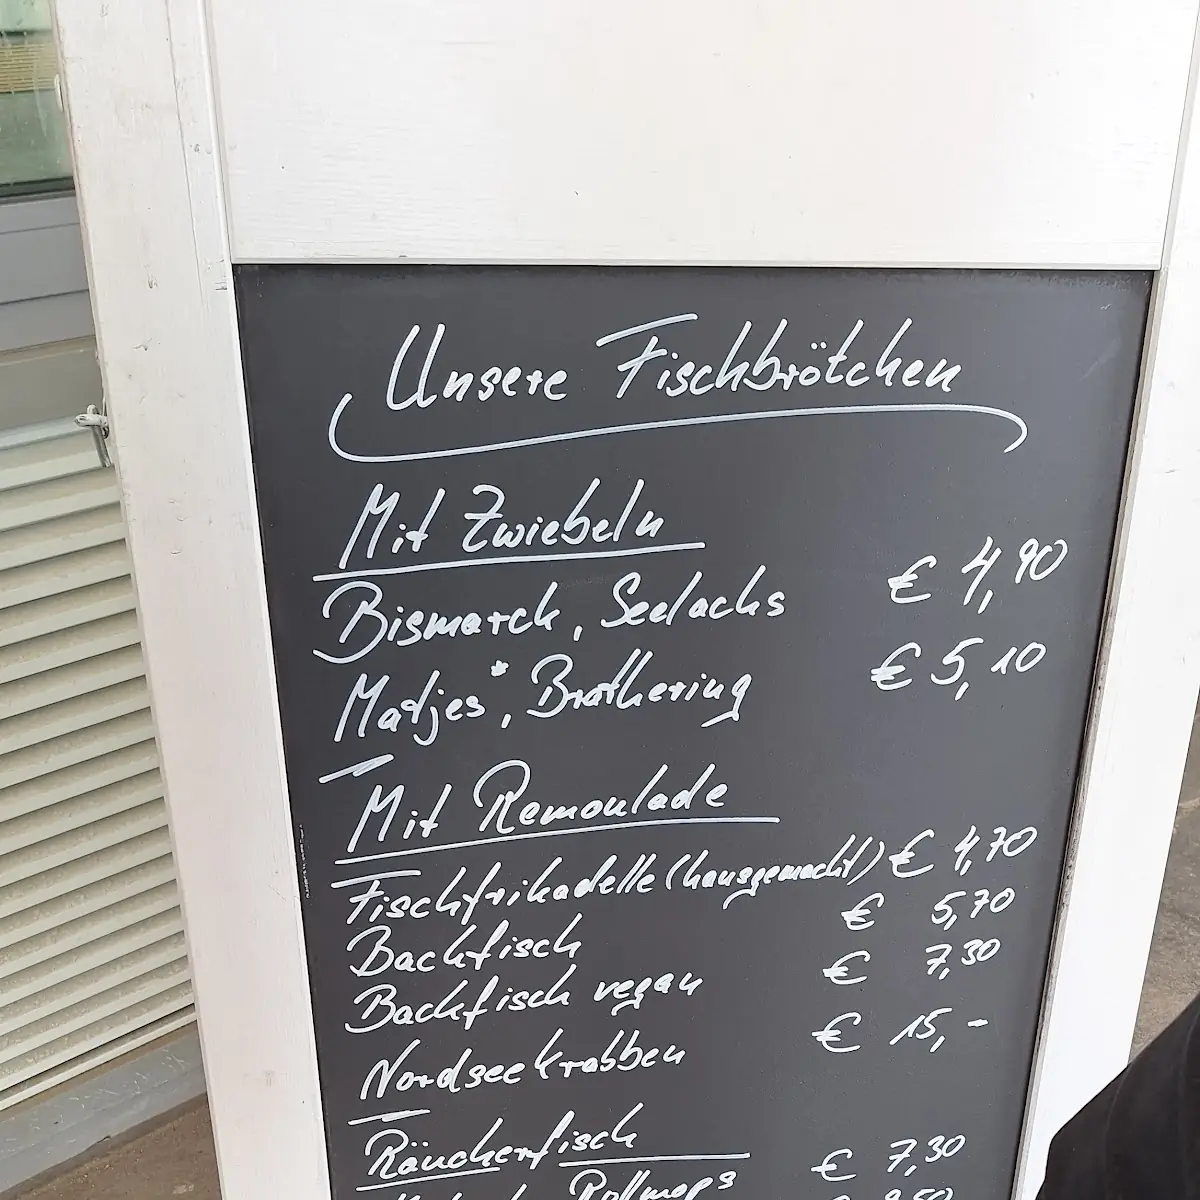 Unsere Fischbrötchen
Mit Zwiebeln
Bismarck, Seelachs € 4,90
Matjes*, Brathering € 5,10
Mit Remoulade
Fischfrikadelle (hausgemacht) € 4,70
Backfisch € 5,70
Backfisch vegan € 7,30
Nordseekrabben € 15,-
Räucherfisch
Rollmops € 7,30